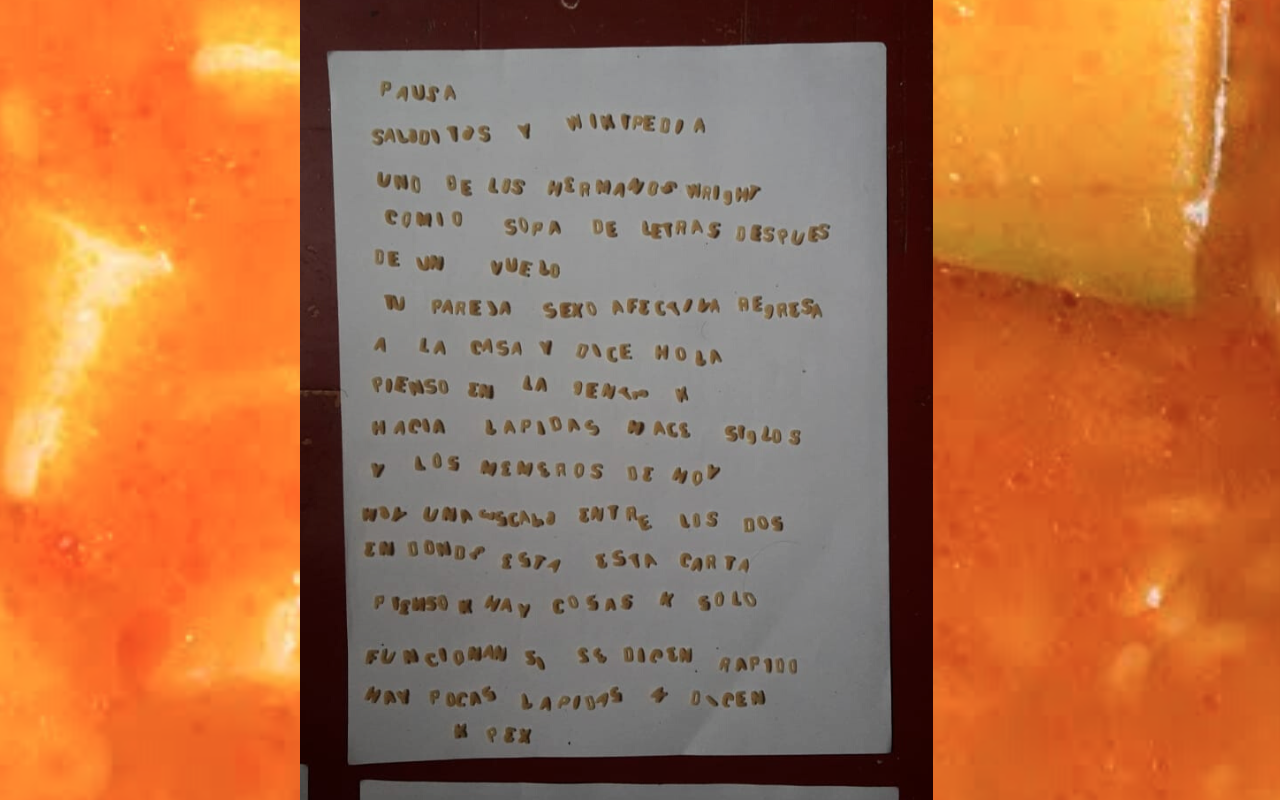 PAUSA
SALUDITOS Y WIKIPEDIA
UNO DE LOS HERMANOS WRIGHT
COMIO SOPA DE LETRAS DESPUES
DE UN VUELO
TU PAREJA SEXO AFECTIVA REGRESA
A LA CASA Y DICE HOLA
PIENSO EN LA GENTE K
HACIA LAPIDAS HACE SIGLOS
Y LOS MEMEROS DE HOY
HOY UNA ESCALA ENTRE LOS DOS
EN DONDE ESTA ESTA CARTA
PIENSO K HAY COSAS K SOLO
FUNCIONAN SI SE DICEN RAPIDO
HAY POCAS LAPIDAS K DICEN
K PEX